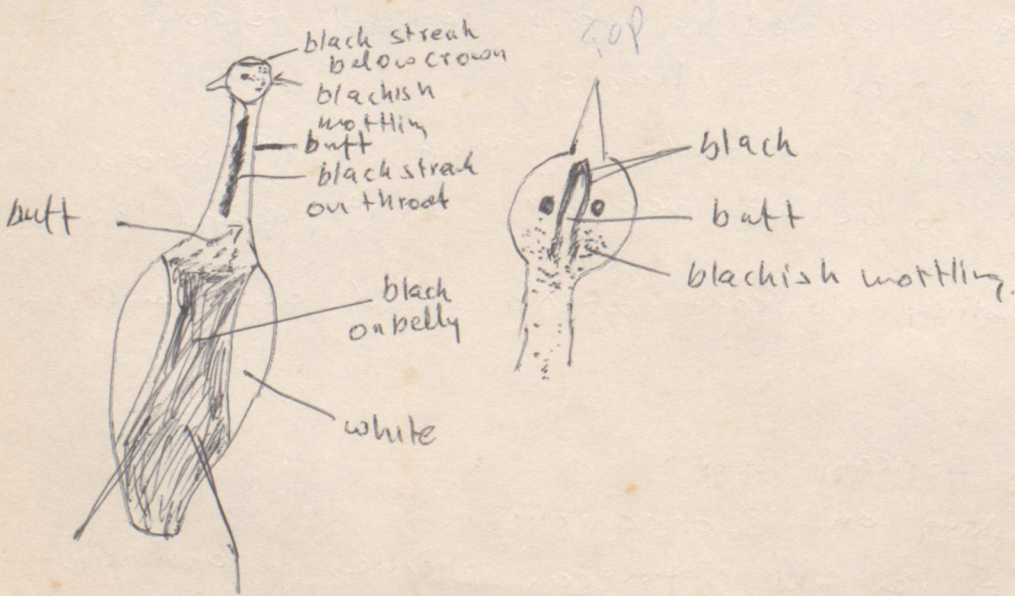 black streak
below crown
blackish
mottling
buff
black streak
on throat
buff
black
on belly
white
black
buff
blackish mottling.